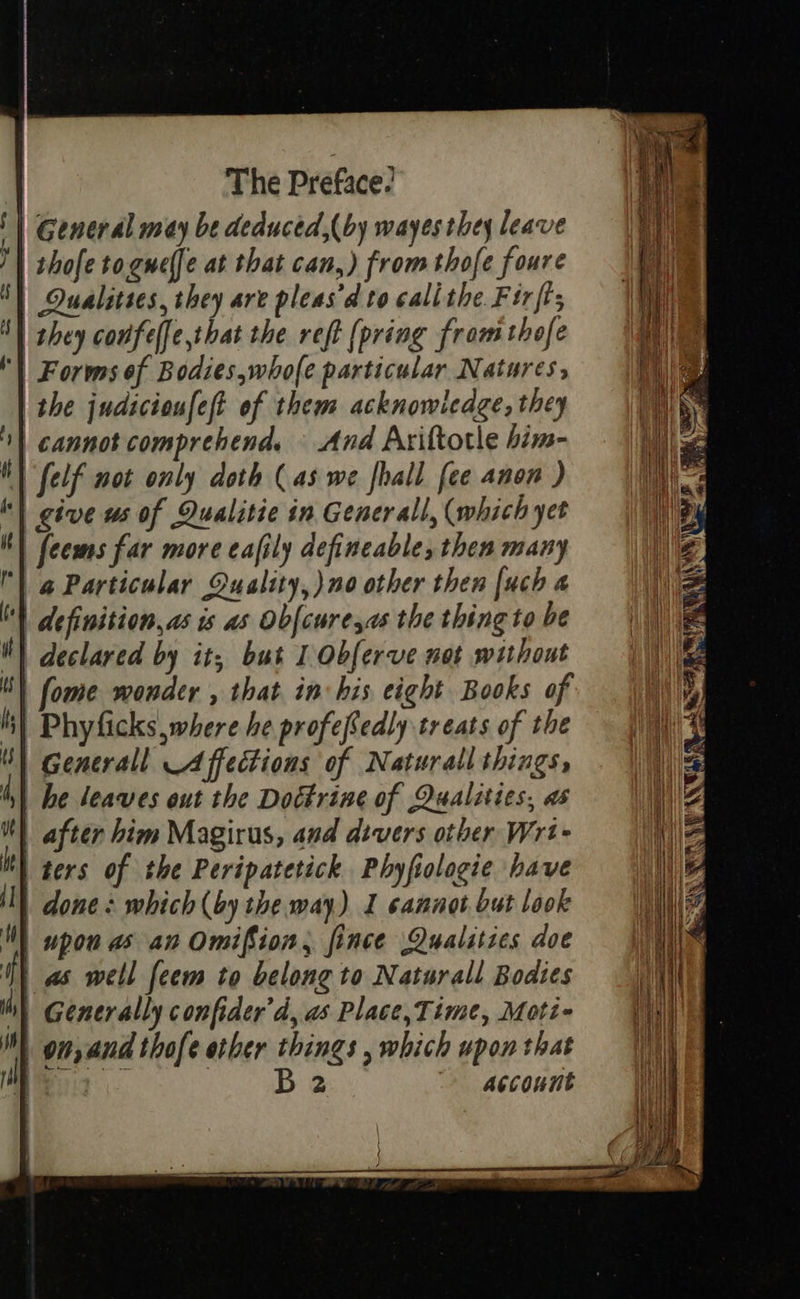 The Preface.
General may be deduced, (by wayes they leave
thoſe to gueſſe at that can,) from thoſe foure
Qualities, they are pleas'd to call the Firſt;
they confeſſe, that the reſt ſpring from thoſe
Forms of Bodies, whoſe particular Natures,
the judiciouſeſt of them acknowledge, they
cannot comprehend. And Ariſtotle him-
ſelf not only doth (as we ſhall ſee anon)
give us of Qualitie in Generall, (which yet
ſeems far more eaſily defineable, then many
a Particular Quality,) no other then ſuch a
definition, as is as Obſcure, as the thing to be
declared by it; but I Obſerve not without
ſome wonder, that in his eight Books of
Phyſicks, where he profeſſedly treats of the
Generall Affections of Naturall things,
he leaves out the Doctrine of Qualities, as
after him Magirus, and divers other Wri-
ters of the Peripatetick Phyſiologie have
done: which (by the way) I cannot but look
upon as an Omiſſion, ſince Qualities doe
as well ſeem to belong to Naturall Bodies
Generally conſider'd, as Place, Time, Moti-
on, and thoſe other things, which upon that
B 2 account